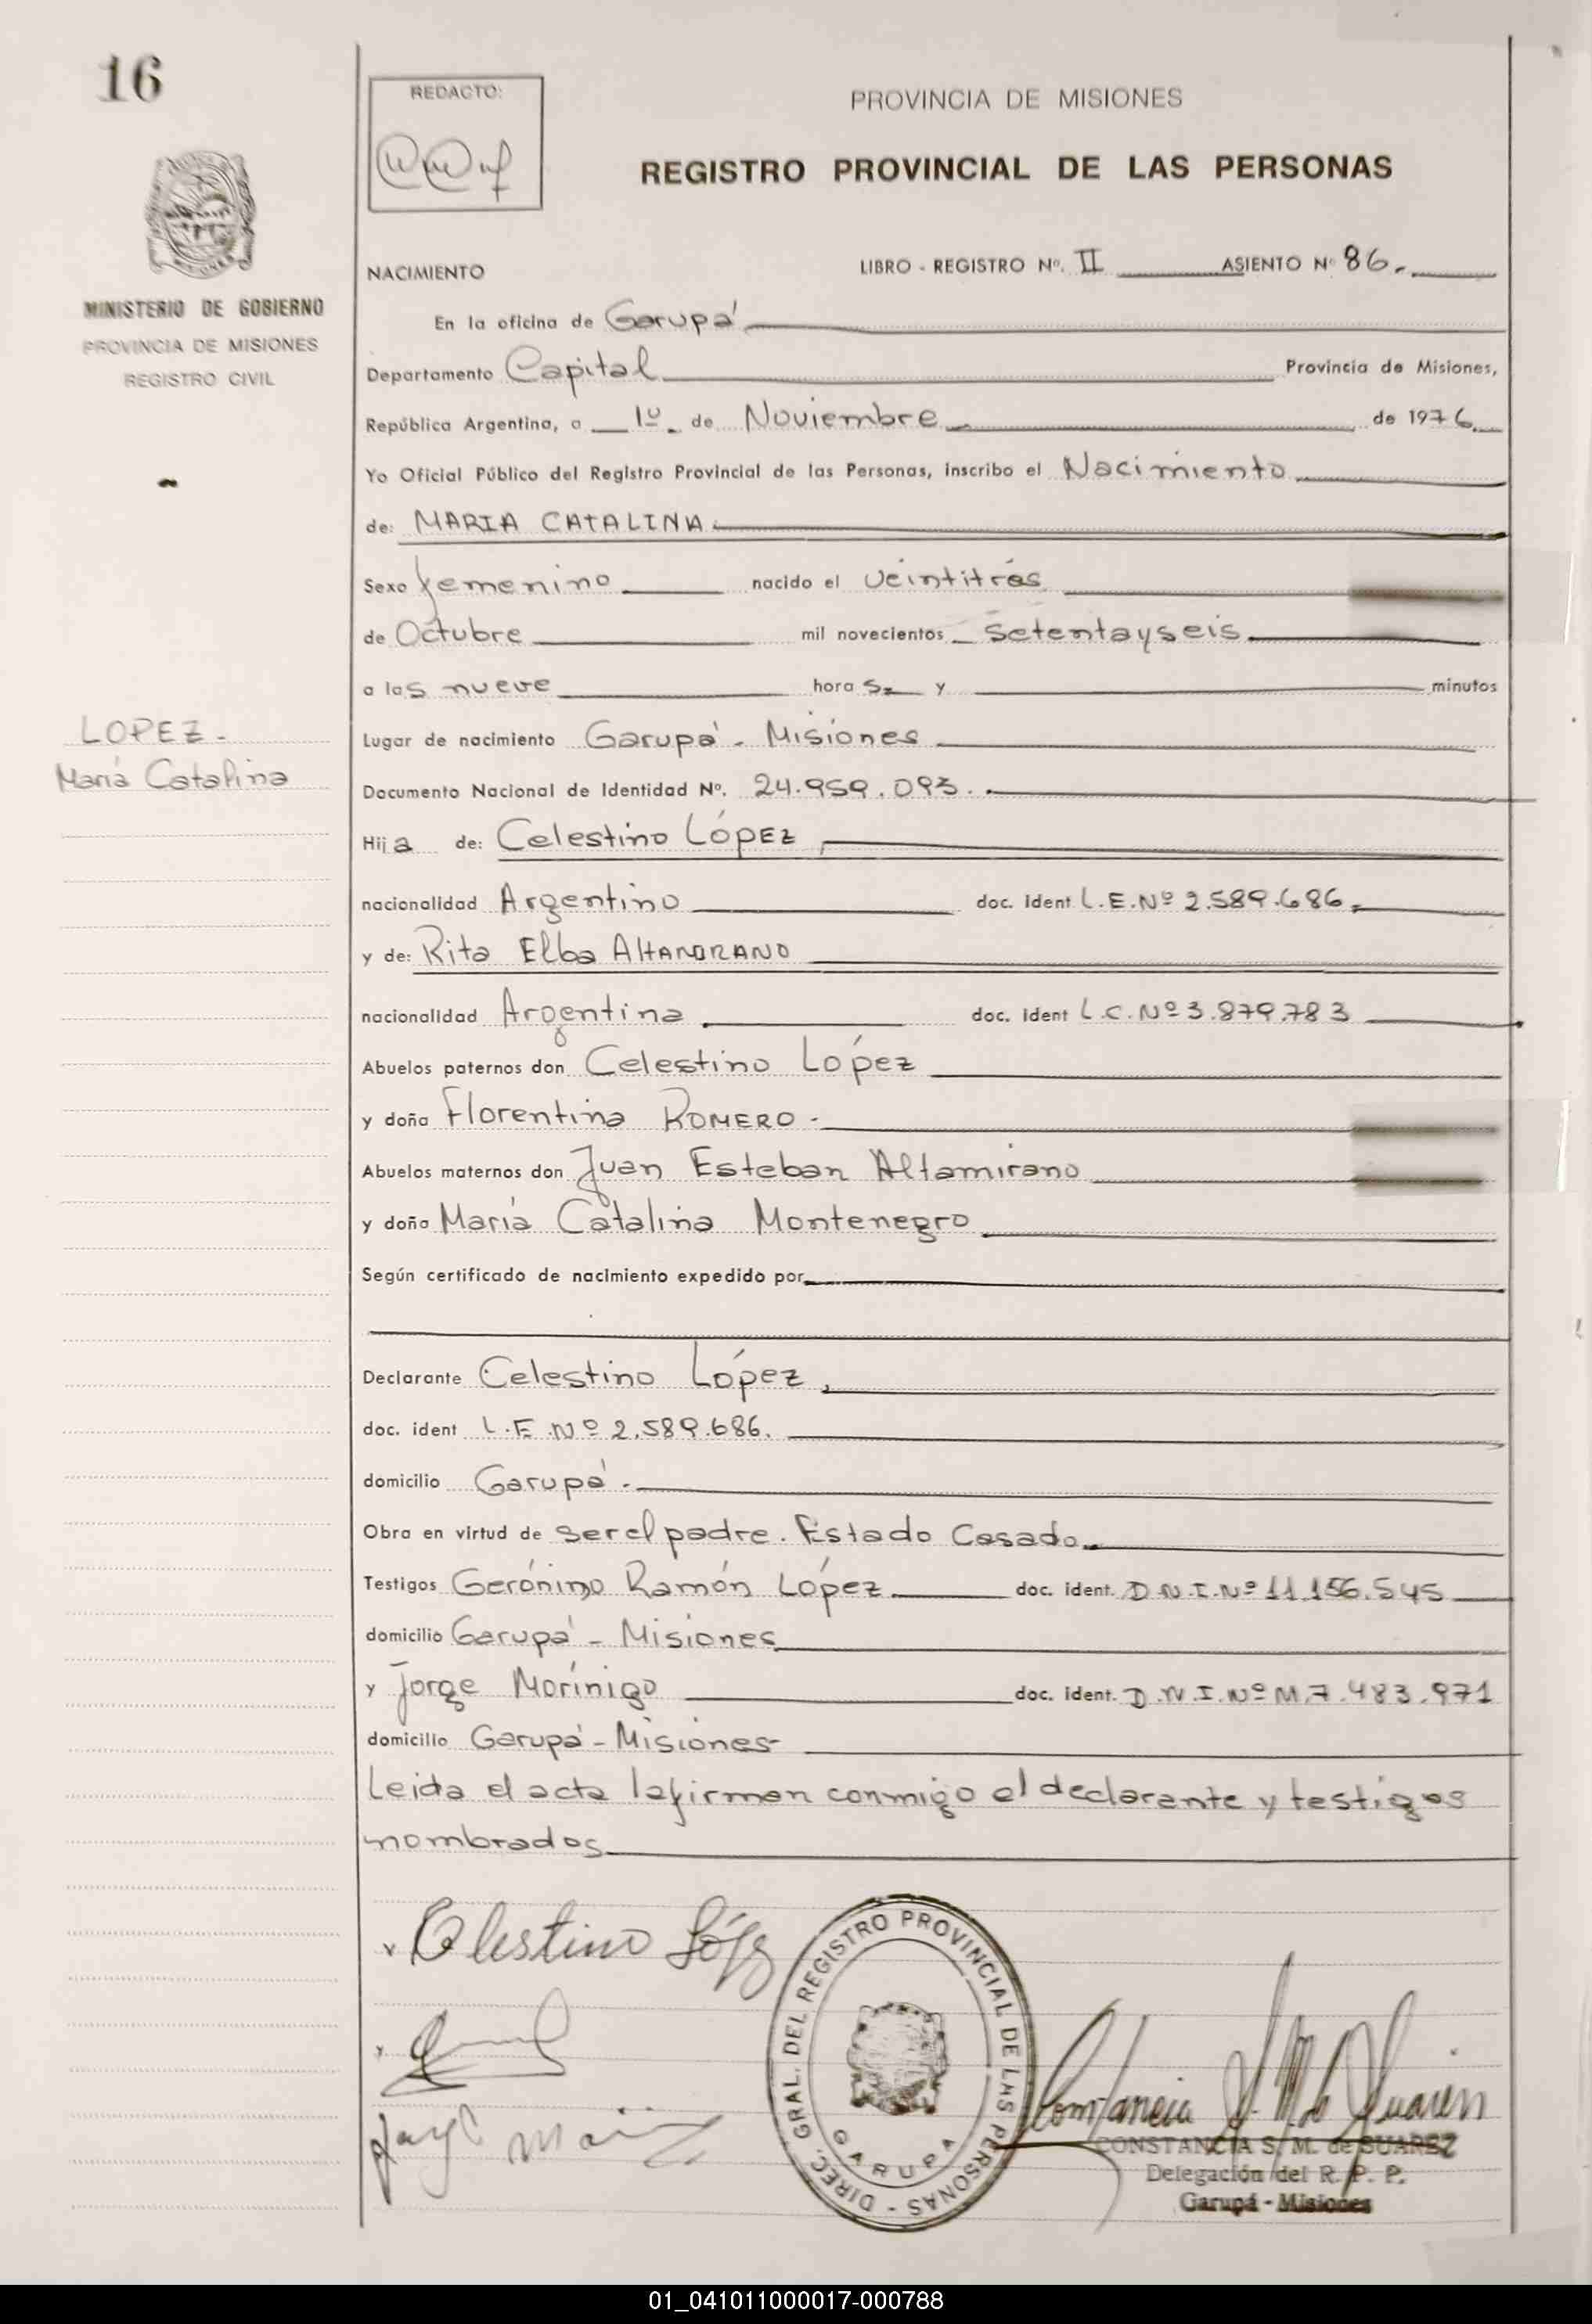 16
REDACTO:
PROVINCIA DE MISIONES
REGISTRO PROVINCIAL DE LAS PERSONAS
MINISTERIO DE GOBIERNO
PROVINCIA DE MISIONES
REGISTRO CIVIL
NACIMIENTO
LIBRO - REGISTRO Nº. II ASIENTO Nº 86.
En la oficina de Garupá
Departamento Capital Provincia de Misiones,
República Argentina, a 1º de Noviembre de 1976
Yo Oficial Público del Registro Provincial de las Personas, inscribo el Nacimiento
de: MARIA CATALINA
Sexo femenino nacido el veintitrés
de Octubre mil novecientos setentayseis
a las nueve horas y minutos
LOPEZ -
María Catalina
Lugar de nacimiento Garupá - Misiones
Documento Nacional de Identidad Nº. 24.959.093.
Hija de: Celestino LópEz,
nacionalidad Argentino doc. ident L.E.Nº 2.589.686
y de: Rita Elba
nacionalidad Argentina doc. ident L.C.Nº 3.879.783
Abuelos paternos don Celestino López
y doña Florentina ROMERO -
Abuelos maternos don Juan Esteban Altamirano
y doña María Catalina Montenegro
Según certificado de nacimiento expedido por
Declarante Celestino López,
doc. ident L.E.Nº 2.589.686.
domicilio Garupá.
Obra en virtud de ser el padre. Estado Casado
Testigos Gerónimo Ramón López doc. ident. D.N.I.Nº 11.156.545
domicilio Garupá - Misiones
y Jorge Morínigo doc. ident. D.N.I.Nº M.7.483.971
domicilio Garupá - Misiones
Leida el acta la firman conmigo el declarante y testigos
nombrados
Celestino López
DIREC. GRAL. DEL REGISTRO PROVINCIAL DE LAS PERSONAS -
GARUPA
CONSTANCIA S. M. de SUAREZ
Delegación del R. P. P.
Garupá - Misiones
01_041011000017-000788